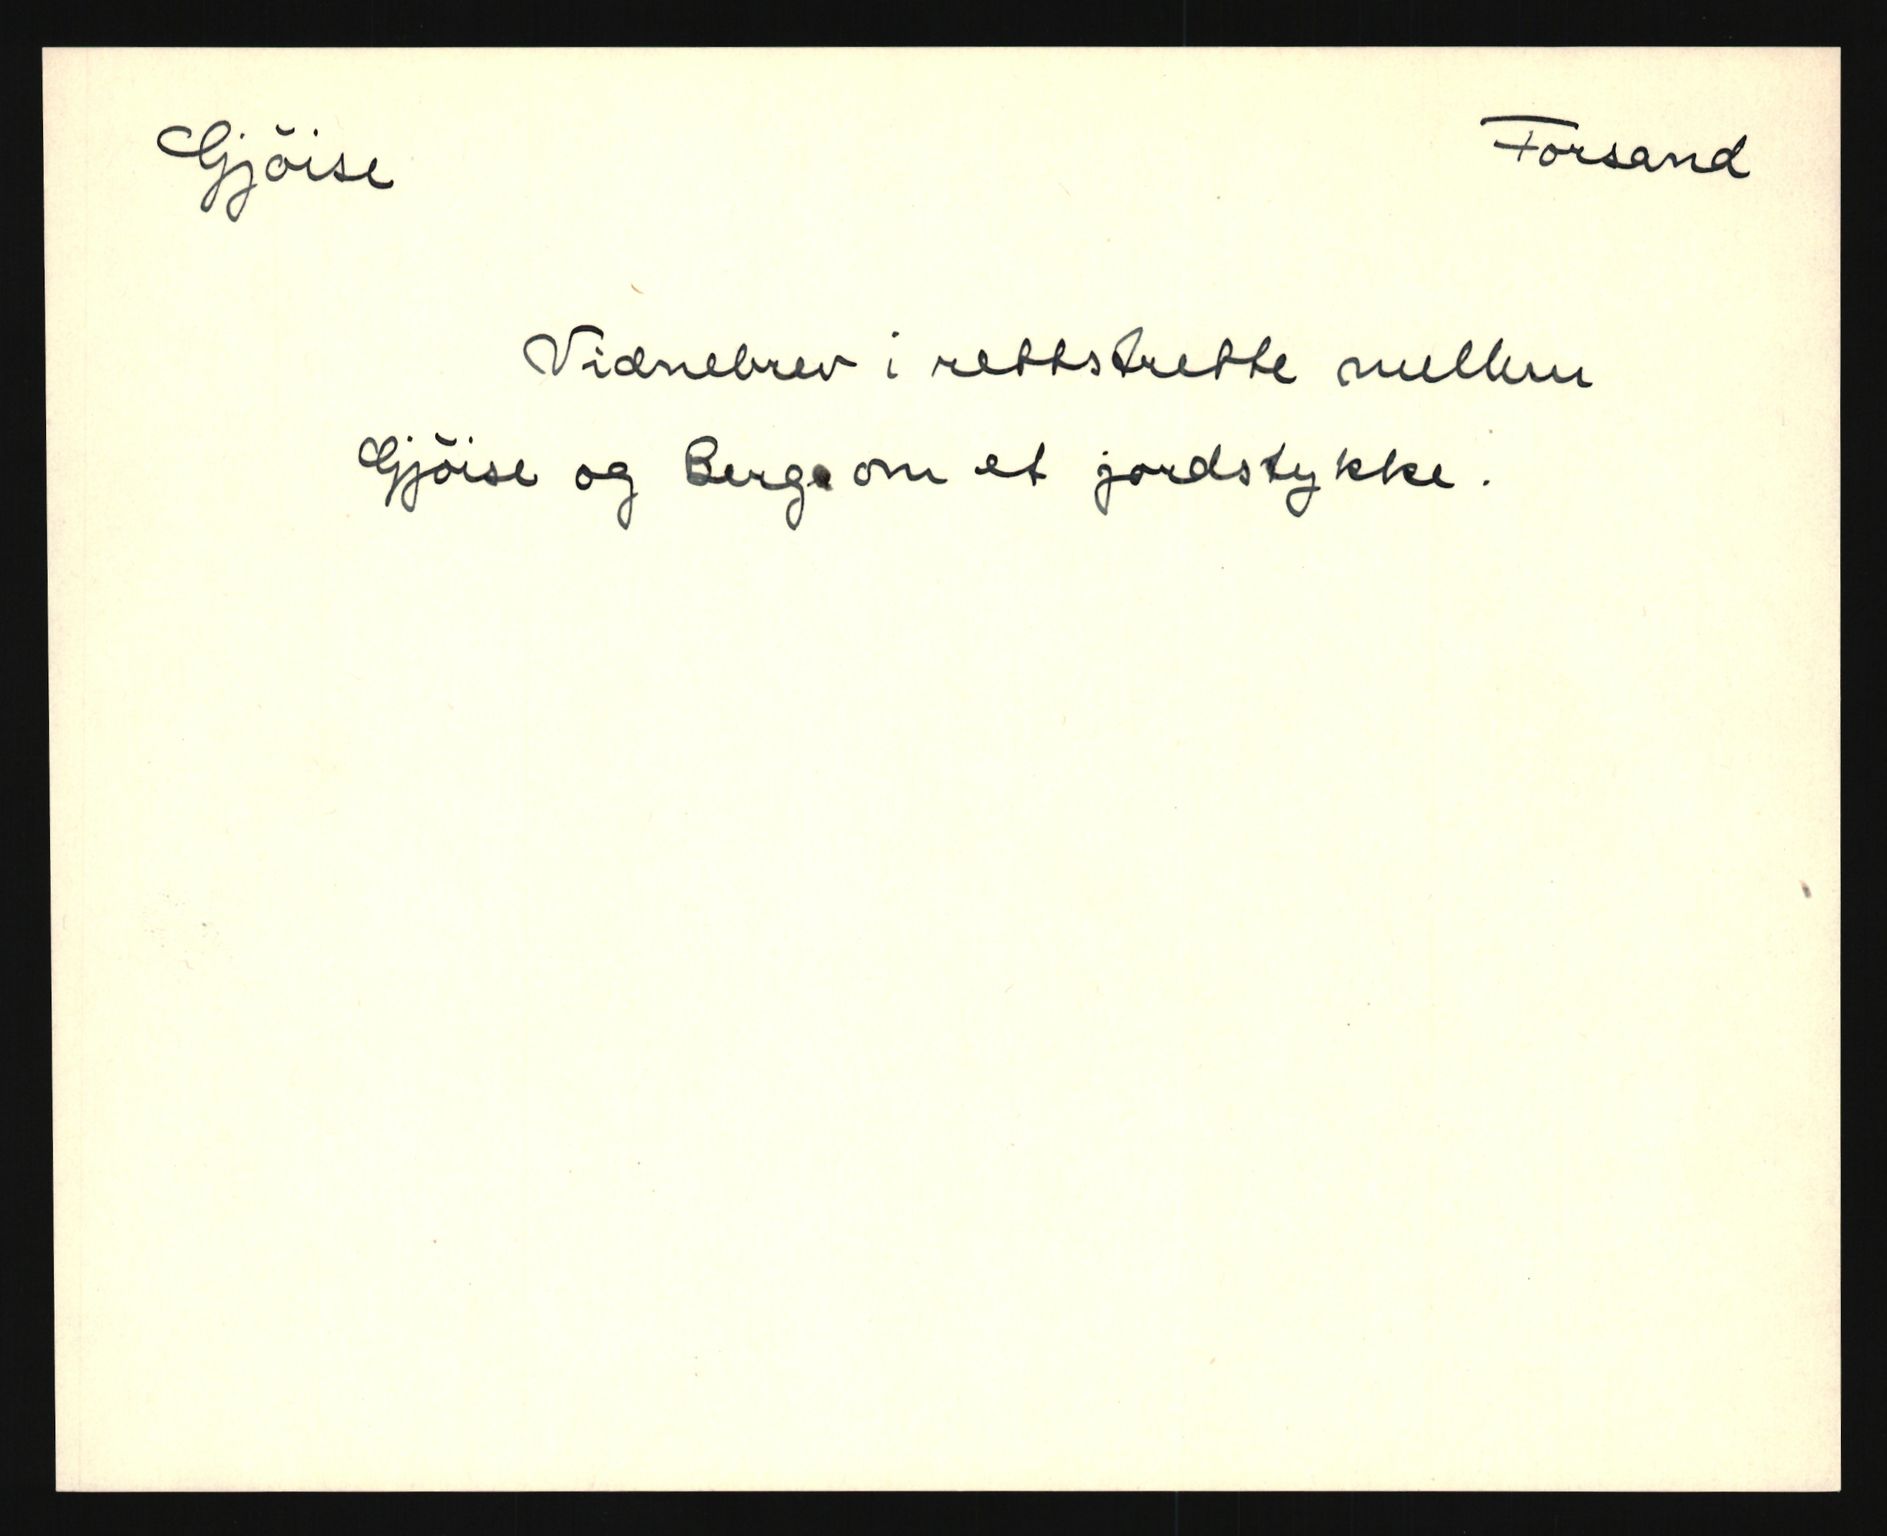 Gjöise
Forsand
Vidnebrev i rettstrette mellem
Gjöise og Berge om et jordstykke.